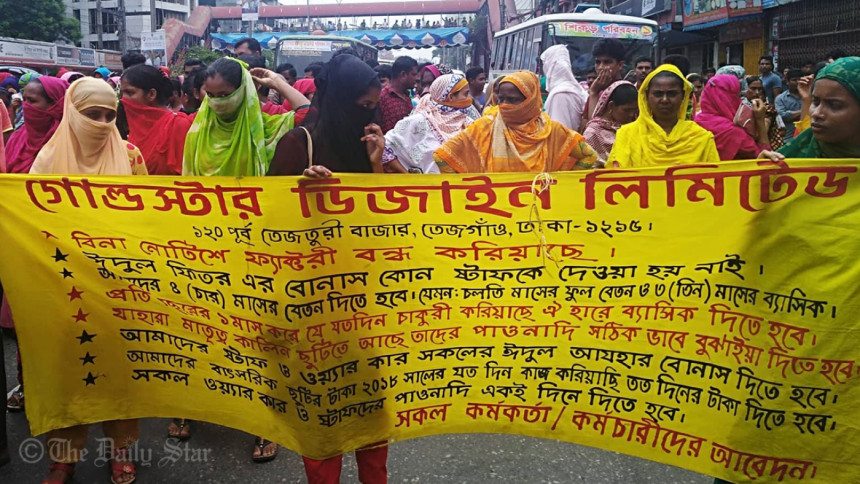 শিকড় পরিবহন
গোল্ডস্টার ডিজাইন লিমিটেড
১২০ পূর্ব তেজতুরী বাজার, তেজগাঁও, ঢাকা-১২১৫।
★ বিনা নোটিশে ফ্যাক্টরী বন্ধ করিয়াছে।
★ ঈদুল ফিতর এর বোনাস কোন স্টাফকে দেওয়া হয় নাই।
★ আমাদের ৪ (চার) মাসের বেতন দিতে হবে। যেমন: চলতি মাসের ফুল বেতন ও ৩ (তিন) মাসের ব্যাসিক।
★ প্রতি বছরের ১ মাস করে যে যতদিন চাকুরী করিয়াছে ঐ হারে ব্যাসিক দিতে হবে।
★ যাহারা মাতৃত্ব কালিন ছুটিতে আছে তাদের পাওনাদি সঠিক ভাবে বুঝাইয়া দিতে হবে।
★ আমাদের ষ্টাফ ও ওয়্যার কার সকলের ঈদুল আযহার বোনাস দিতে হবে।
★ আমাদের বাৎসরিক ছুটির টাকা ২০১৮ সালের যত দিন কাজ করিয়াছি তত দিনের টাকা দিতে হবে।
★ সকল ওয়্যার কার ও স্টাফদের পাওনাদি একই দিনে দিতে হবে।
সকল কর্মকর্তা / কর্মচারীদের আবেদন।
© The Daily Star